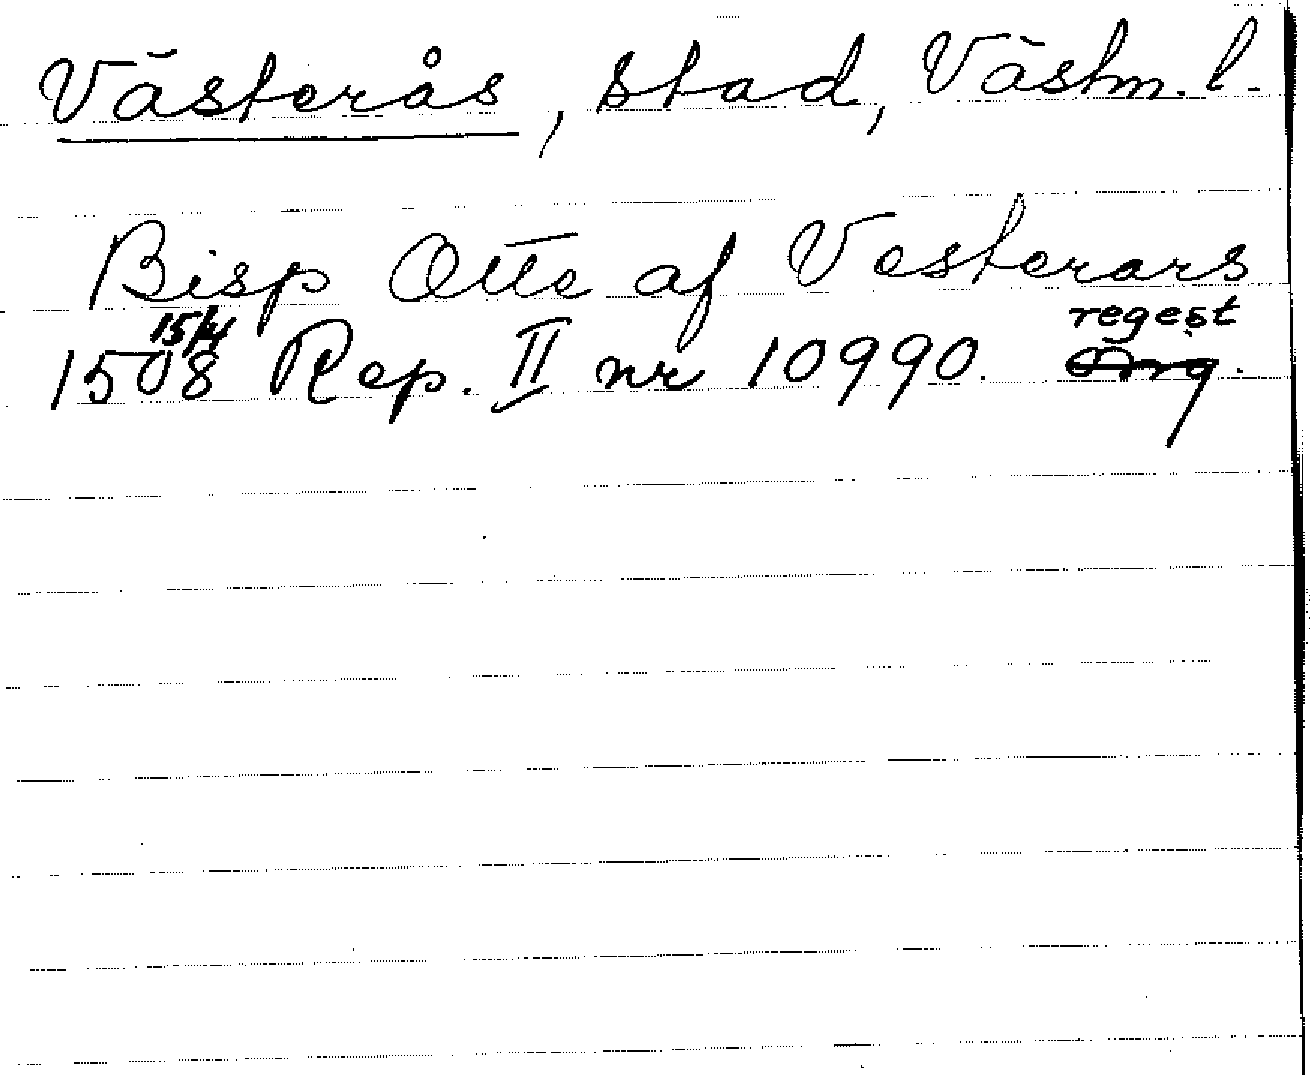 Västerås, stad, Västm. l.
Bisp Otte af Vesterars
15/4 regest
1508 Rep. II nr 10990. Orig.